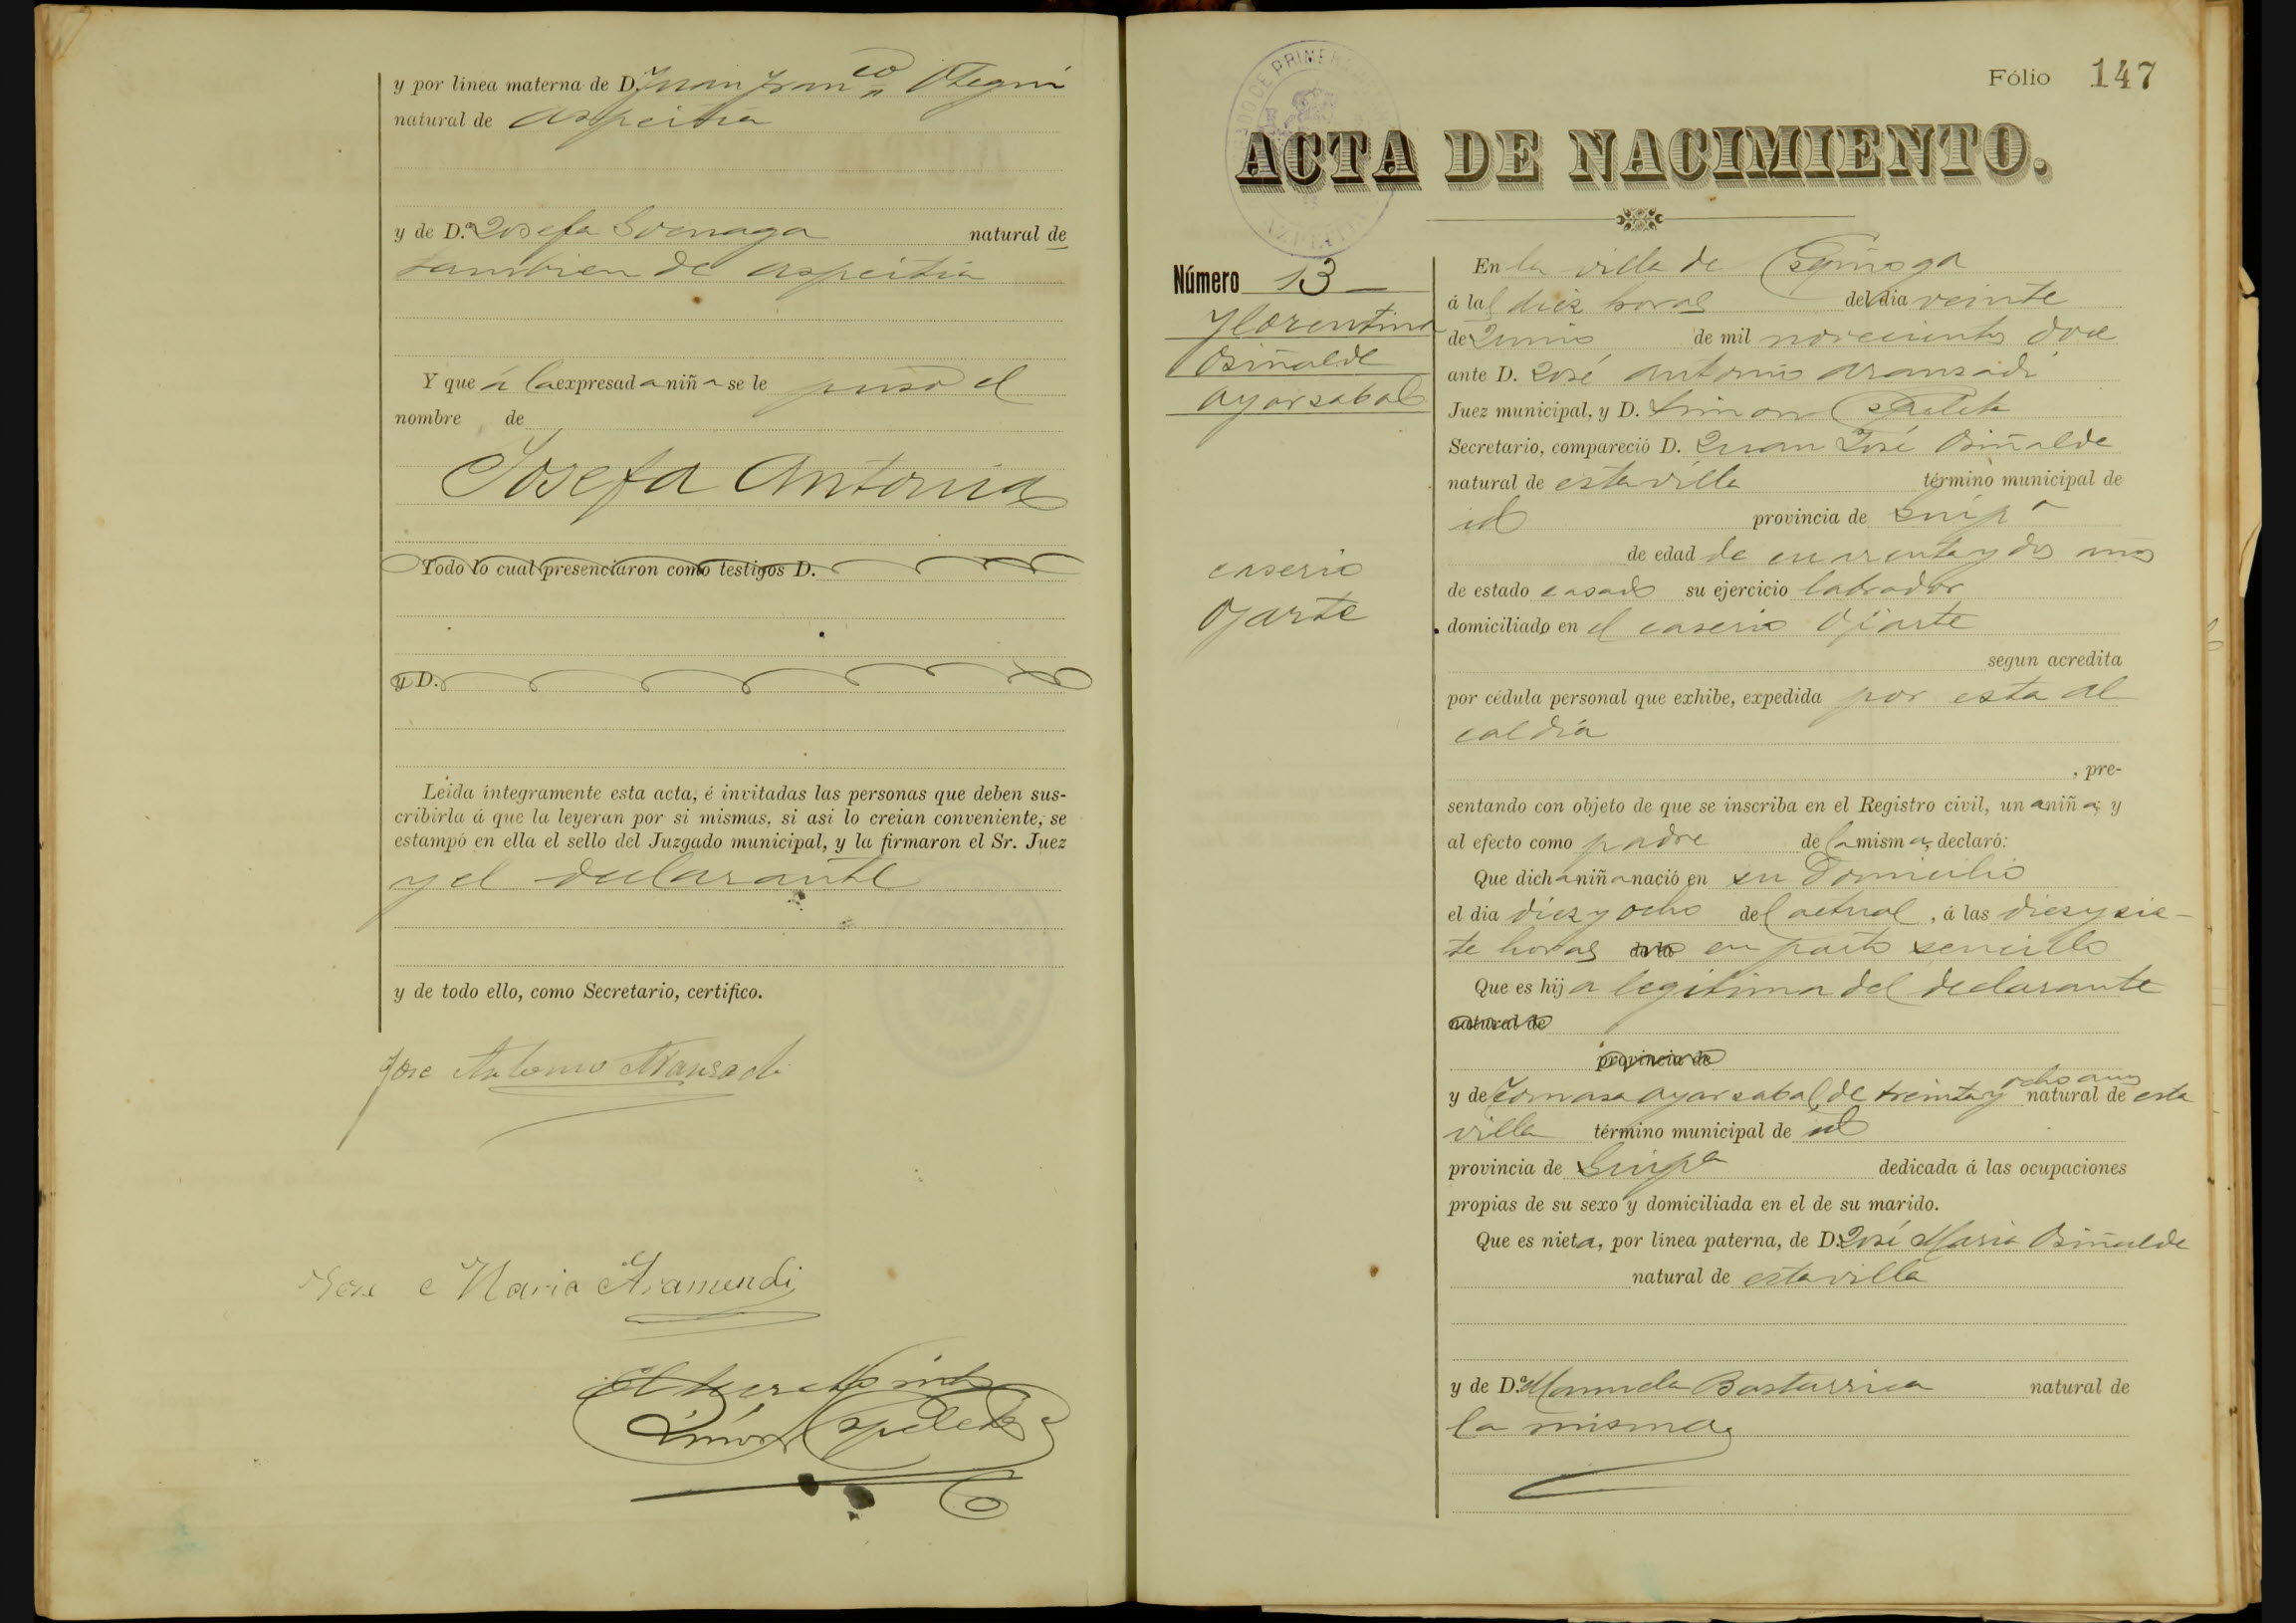 y por línea materna de D. Juan Fran.co Otegui
natural de Aspeitia
y de D.ª Josefa Gorriaga natural de
tambien de Aspeitia
Y que á la expresada niña se le puso el
nombre de
Josefa Antonia
Todo lo cual presenciaron como testigos D.
y D.
Leida íntegramente esta acta, é invitadas las personas que deben sus-
cribirla á que la leyeran por si mismas, si asi lo creían conveniente, se
estampó en ella el sello del Juzgado municipal, y la firmaron el Sr. Juez
y el declarante
y de todo ello, como Secretario, certifico.
Jose Antonio Aransadi
Jose Maria Aramendi
Simon Espeleta
Fólio 147
ACTA DE NACIMIENTO.
Número 13
Florentina
Osiñalde
Ayarsabal
caserio
Ojarte
En la villa de
á las diez horas del dia veinte
de Junio de mil novecientos doce
ante D. José Antonio Aransadi
Juez municipal, y D. Simon Espeleta
Secretario, compareció D. Juan José Osiñalde
natural de esta villa término municipal de
id provincia de Guip.a
de edad de cuarenta y dos años
de estado casado su ejercicio labrador
domiciliado en el caserio Ojarte
segun acredita
por cédula personal que exhibe, expedida por esta al
caldía
, pre-
sentando con objeto de que se inscriba en el Registro civil, una niña; y
al efecto como padre de la misma, declaró:
Que dicha niña nació en su domicilio
el dia diez y ocho del actual, á las diez y sie-
te horas de la en parto sencillo
Que es hija legitima del declarante
natural de
provincia de
y de Tomasa Ayarsabal, de treinta y ocho años natural de esta
villa término municipal de id
provincia de Guip.a dedicada á las ocupaciones
propias de su sexo y domiciliada en el de su marido.
Que es nieta, por línea paterna, de D. José Maria Osiñalde
natural de esta villa
y de D.ª Manuela Bastarrica natural de
la misma